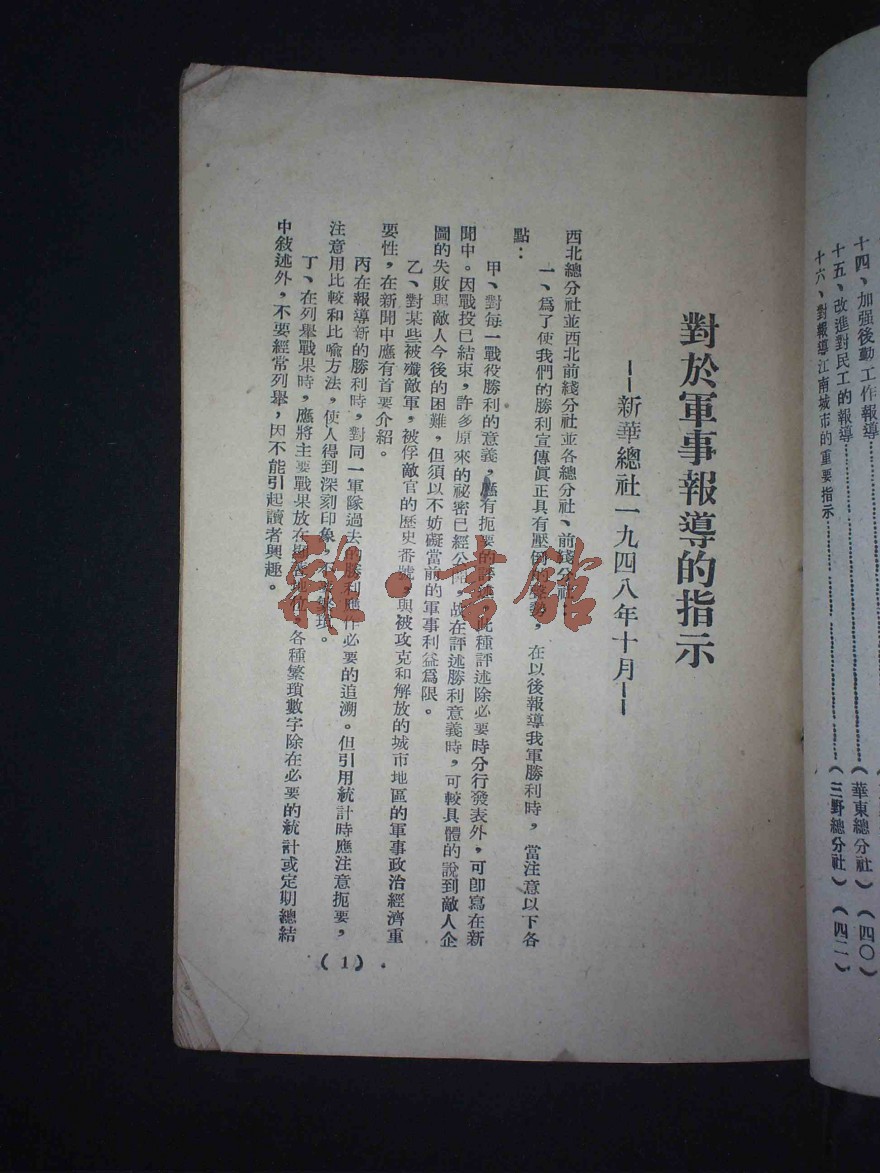 十四、加强後勤工作報導………………（華東總分社）（四〇）
十五、改進對民工的報導………………
十六、對報導江南城市的重要指示………………（三野總分社）（四二）
對於軍事報導的指示
——新華總社一九四八年十月——
西北總分社並西北前綫分社並各總分社、前綫分社：
一、爲了使我們的勝利宣傳眞正具有壓倒的聲勢，在以後報導我軍勝利時，當注意以下各
點：
甲、對每一戰役勝利的意義，應有扼要的評述，此種評述除必要時分行發表外，可卽寫在新
聞中。因戰投已結束，許多原來的祕密已經公開，故在評述勝利意義時，可較具體的說到敵人企
圖的失敗與敵人今後的困難，但須以不妨礙當前的軍事利益爲限。
乙、對某些被殲敵軍，被俘敵官的歷史番號，與被攻克和解放的城市地區的軍事政治經濟重
要性，在新聞中應有首要介紹。
丙在報導新的勝利時，對同一軍隊過去的勝利應作必要的追溯。但引用統計時應注意扼要，
注意用比較和比喩方法，使人得到深刻印象，不要繁瑣。
丁、在列舉戰果時，應將主要戰果放在地位，各種繁瑣數字除在必要的統計或定期總結
中敍述外，不要經常列舉，因不能引起讀者興趣。
（1）
雜·書館